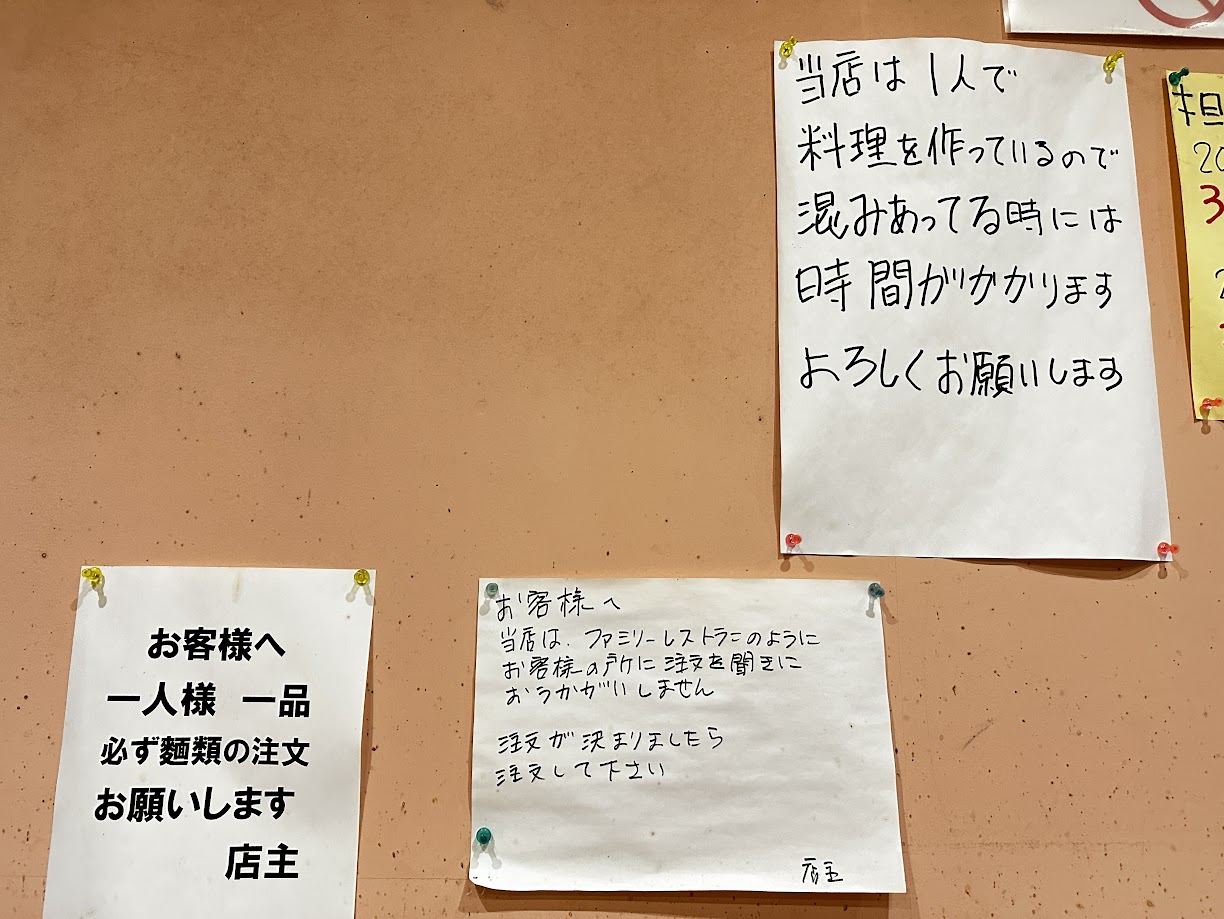 当店は1人で
料理を作っているので
混みあってる時には
時間がかかります
よろしくお願いします
お客様へ
一人様 一品
必ず麺類の注文
お願いします
店主
お客様へ
当店は、ファミリーレストランのように
お客様の所に注文を聞きに
おうかがいしません
注文が決まりましたら
注文して下さい
店主
担
20
3